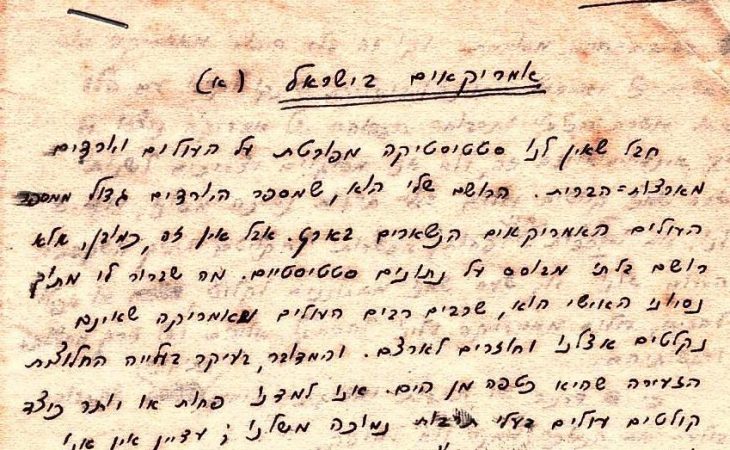 אמריקאים בישראל (א)
חבל שאין לנו סטטיסטיקה מפורטת על העולים וארדים
מארצות=הברית. הרושם שלי הוא, שמספר היורדים גדול ממספר
העולים האמריקאים הנשארים בארץ. אבל אין זה, כמובן, אלא
רושם בלתי מבוסס על נתונים סטטיסטיים. מה שברור לי מתוך
נסיוני האישי הוא, שרבים רבים העולים מאמריקה שאינם
נקלטים אצלנו וחוזרים לארצם. והמדובר, בעיקר בעלייה החלוצית
הזעירה שהיא כטפה מן הים. אנו למדנו פחות או יותר כיצד
קולטים עולים בעלי תרבות נמוכה משלנו; עדיין אין אנו